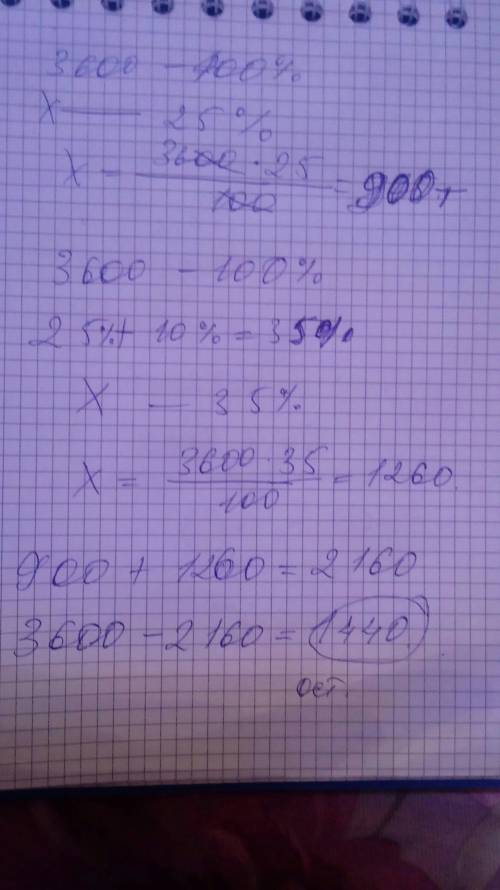 3600 - 100%
X — 25%
X - 3600 · 25 / 100 = 900т
3600 - 100%
25% + 10% = 35%
X — 35%
X = 3600 · 35 / 100 = 1260.
900 + 1260 = 2160
3600 - 2160 = 1440
ост.